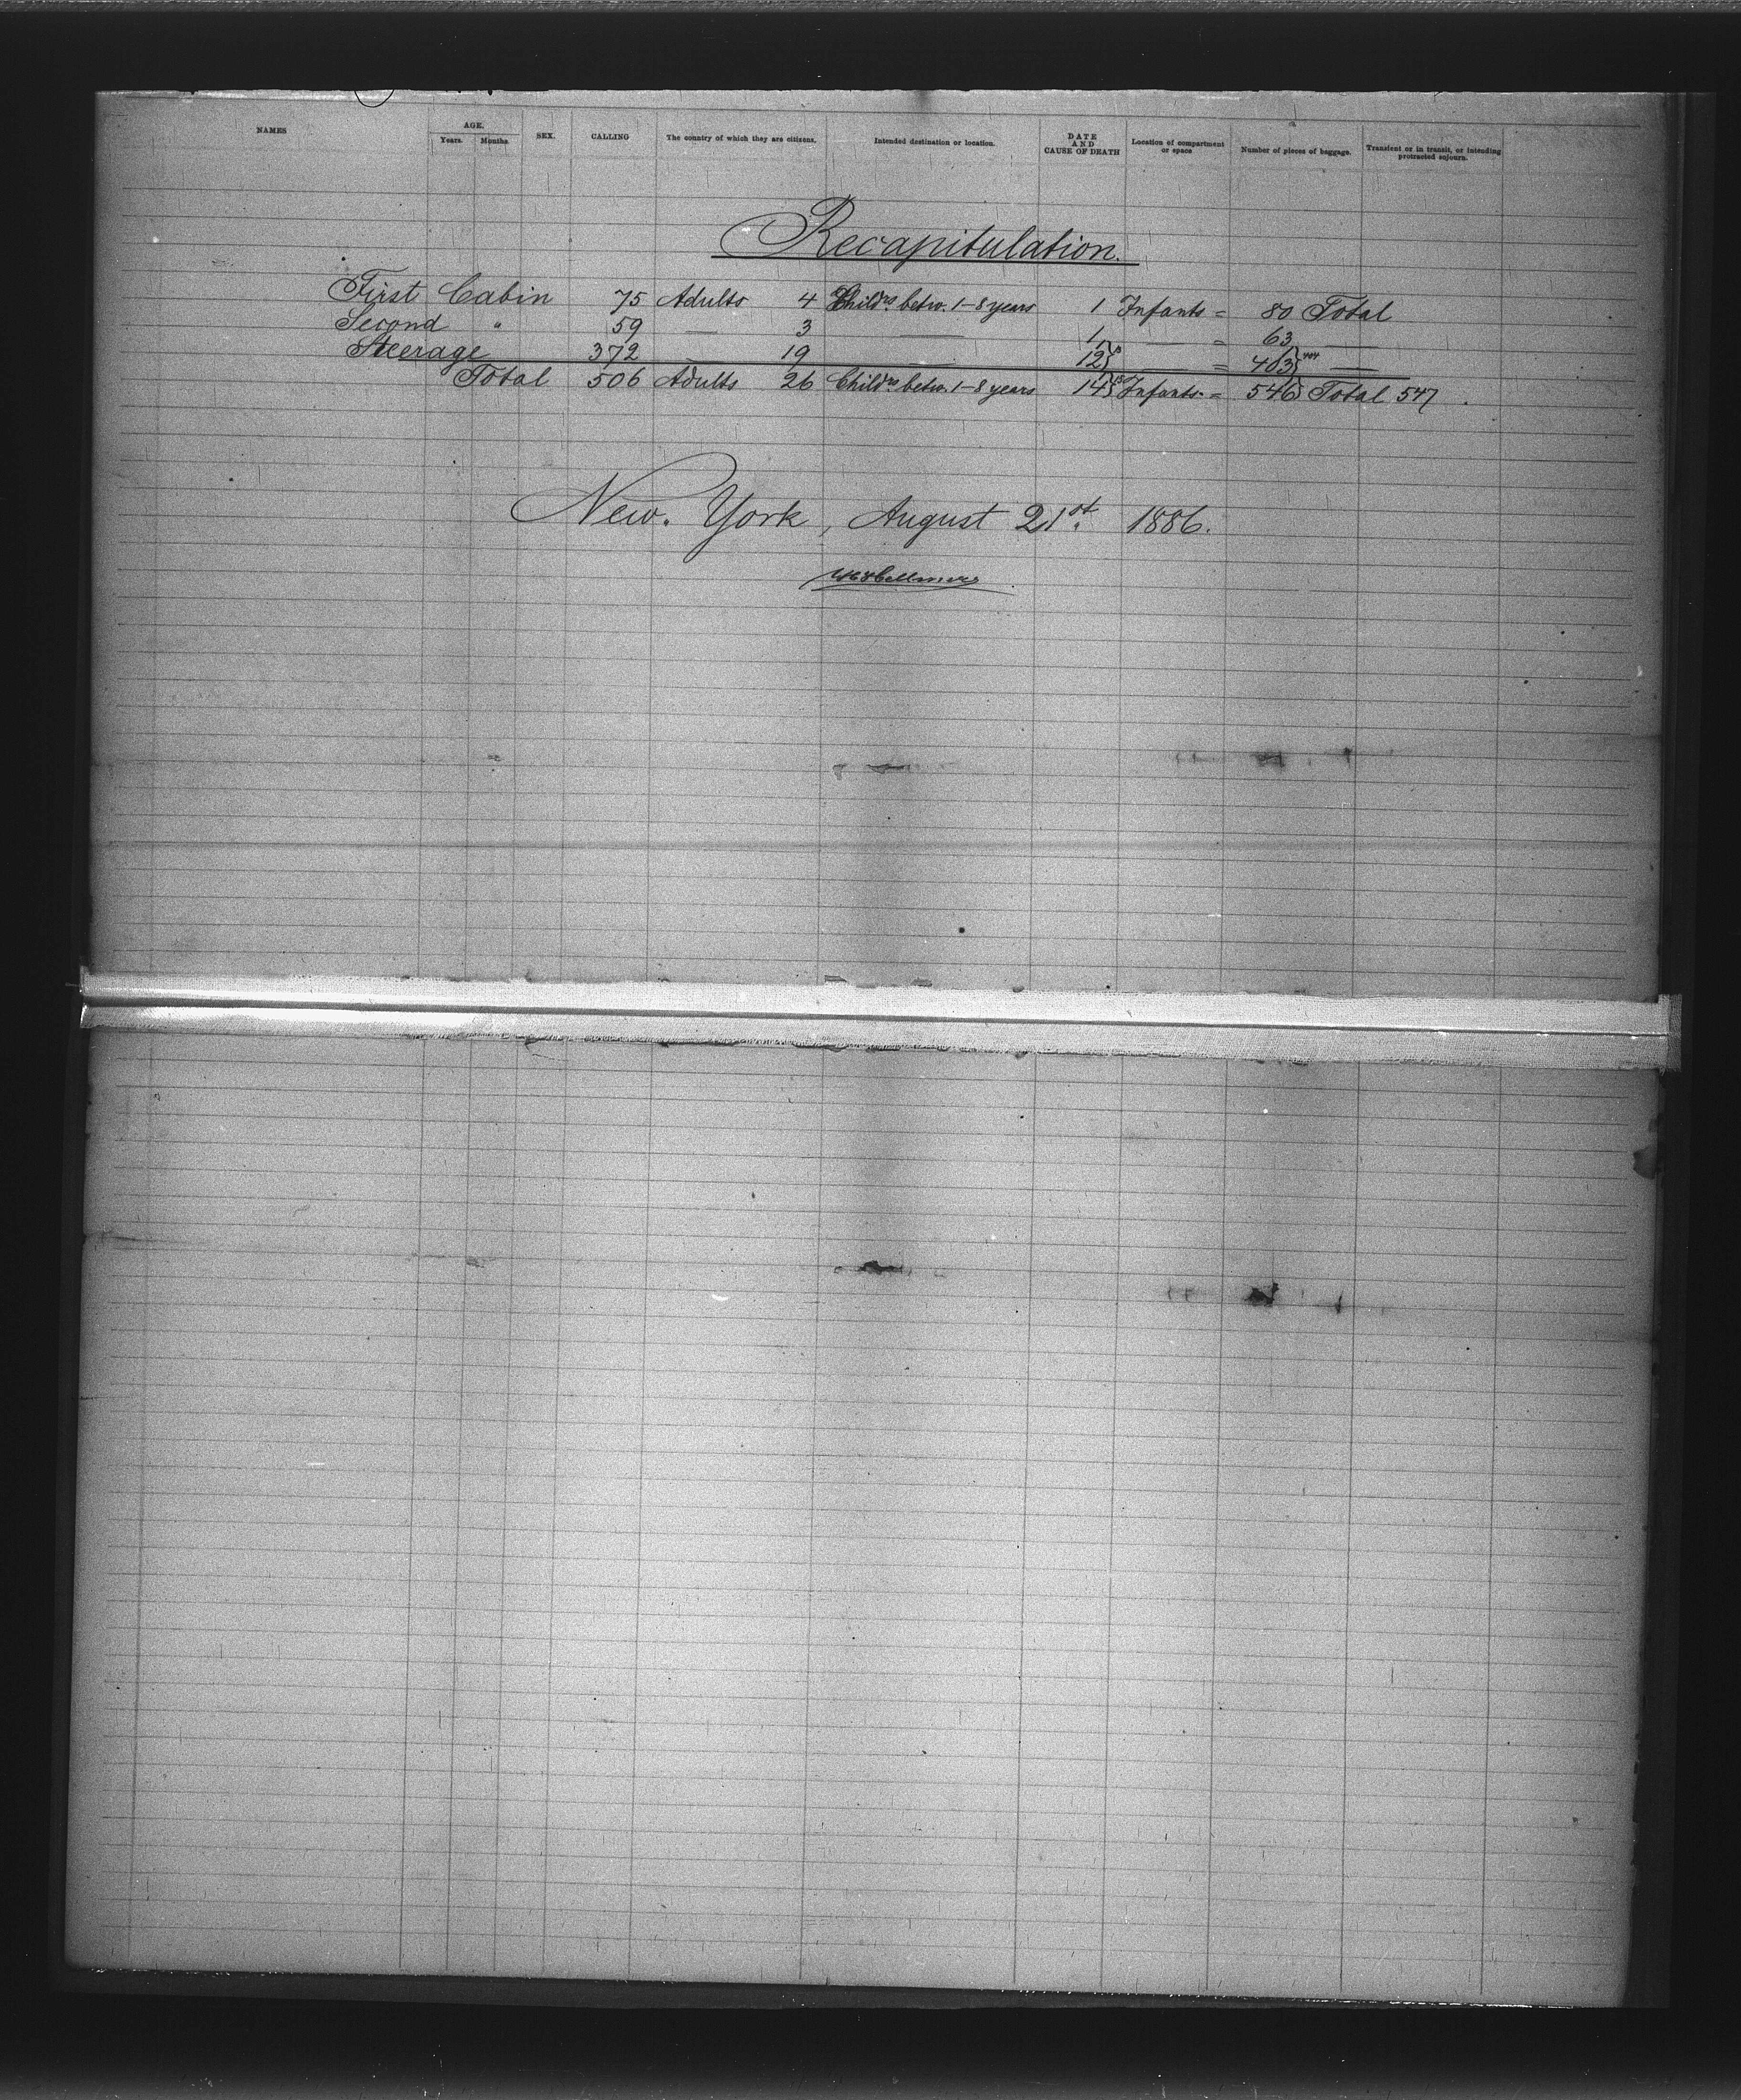 NAMES AGE. Years. Months. SEX. CALLING The country of which they are citizens. Intended destination or location. DATE AND CAUSE OF DEATH Location of compartment or space Number of pieces of baggage. Transient or in transit, or intending protracted sojourn.
Recapitulation.
First Cabin 75 Adults 4 Childrs. betw. 1-8 years 1 Infants = 80 Total
Second " 59 — 3 — 1 — = 63 —
Steerage 372 — 19 — 12 — = 403 404 —
Total 506 Adults 26 Childrs. betw. 1-8 years 14 Infants = 546 Total 547
New York, August 21st. 1886.